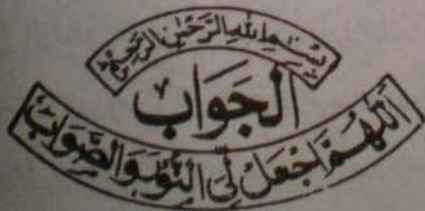 بِسْمِ اللهِ الرَّحْمٰنِ الرَّحِيْمِ
الْجَوَاب
اَللّٰهُمَّ اجْعَلْ لِّي النُّوْرَ وَالصَّوَابَ